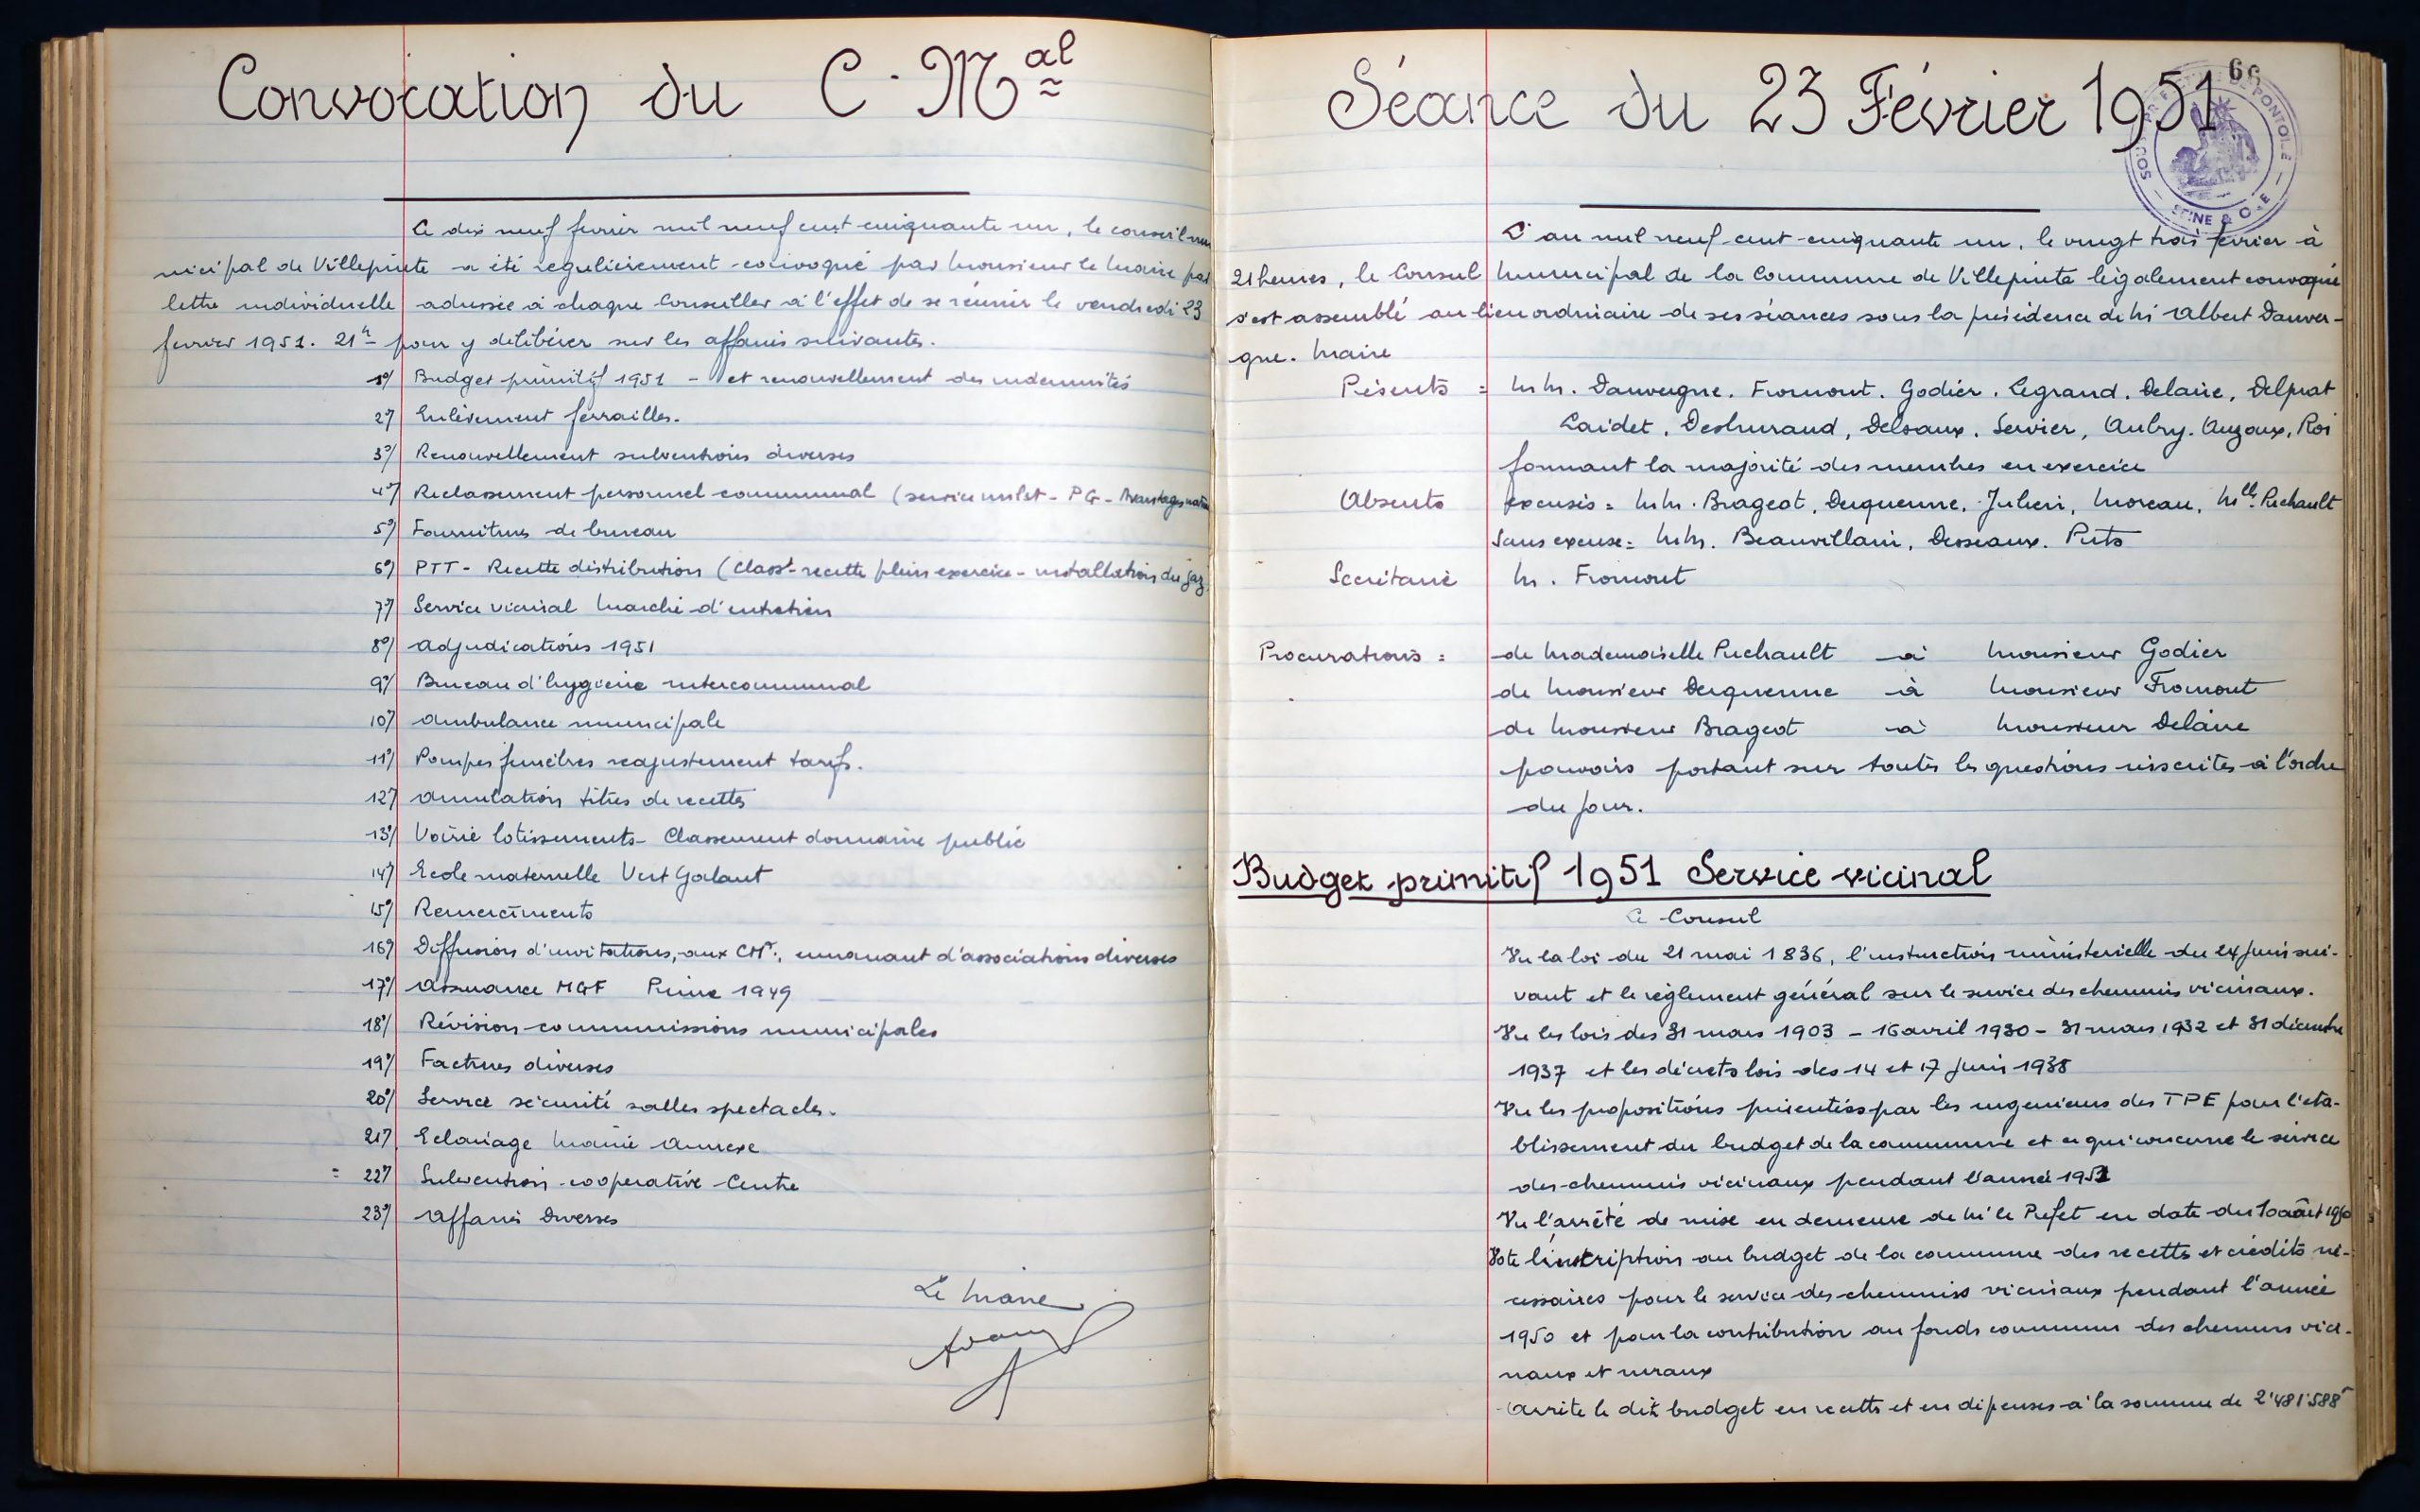 Convocation du C. Mal
Ce dix neuf fevrier mil neuf cent cinquante un, le conseil mu
nicipal de Villepinte a été regulièrement convoqué par Monsieur le Maire par
lettre individuelle adressée à chaque Conseiller à l'effet de se réunir le vendredi 23
fevrier 1951. 21h pour y delibérer sur les affaires suivantes.
1°/ Budget primitif 1951 - et renouvellement des indemnités
2°/ Enlèvement ferrailles.
3°/ Renouvellement subventions diverses
4°/ Reclassement personnel communal (service milit - PG - Avantages natu
5°/ Fournitures de bureau
6°/ PTT - Recette distribution (Classt recette plein exercice - installation du gaz
7°/ Service vicinal Marché d'entretien
8°/ Adjudications 1951
9°/ Bureau d'hygiène intercommunal
10°/ Ambulance municipale
11°/ Pompes funèbres reajustement tarifs.
12°/ Annulation titres de recettes
13°/ Voirie lotissements - Classement domaine public
14°/ Ecole maternelle Vert Galant
15°/ Remerciments
16°/ Diffusion d'invitations, aux CM., emanant d'associations diverses
17°/ Assurance MGF Prime 1949
18°/ Révision commissions municipales
19°/ Factures diverses
20°/ Service sécurité salles spectacles.
21°/ Eclairage Mairie Annexe
= 22°/ Subvention coopérative Centre
23°/ Affaires Diverses
Le Maire
Séance du 23 Février 1951
66
SOUS PRÉFECTURE DE PONTOISE
SEINE & OISE
L'an mil neuf cent cinquante un, le vingt trois février à
21 heures, le Conseil Municipal de la Commune de Villepinte légalement convoqué
s'est assemblé au lieu ordinaire de ses séances sous la présidence de Mr Albert Dauver-
gne. Maire
Présents = MM. Dauvergne. Fromont. Godier. Legrand. Delaire, Delprat
Laidet, Deshuraud, Delsaux, Servier, Aubry. Auzoux, Roi
formant la majorité des membres en exercice
Absents excusés = MM. Brageot, Duquenne, Julien, Moreau, Mlle Puchault
Sans excuse = MM. Beauvillain, Desseaux. Puts
Secrétaire M. Fromont
Procurations = de Mademoiselle Puchault à Monsieur Godier
de Monsieur Duquenne à Monsieur Fromont
de Monsieur Brageot à Monsieur Delaire
pouvoirs portant sur toutes les questions inscrites à l'ordre
du jour.
Budget primitif 1951 Service vicinal
Le Conseil
Vu la loi du 21 mai 1836, l'instruction ministerielle du 24 juin sui-
vant et le règlement général sur le service des chemins vicinaux.
Vu les lois des 31 mars 1903 - 16 avril 1930 - 31 mars 1932 et 31 décembre
1937 et les décrets lois des 14 et 17 juin 1938
Vu les propositions présentées par les ingenieurs des TPE pour l'éta-
blissement du budget de la commune et ce qui concerne le service
des chemins vicinaux pendant l'année 1951
Vu l'arrêté de mise en demeure de Mr le Préfet en date du 10 août 1950
Vote l'inscription au budget de la commune des recettes et crédits né-
cessaires pour le service des chemins vicinaux pendant l'année
1950 et pour la contribution au fonds commun des chemins vici-
naux et ruraux
Arrête le dit budget en recettes et en dépenses à la somme de 2'481'588